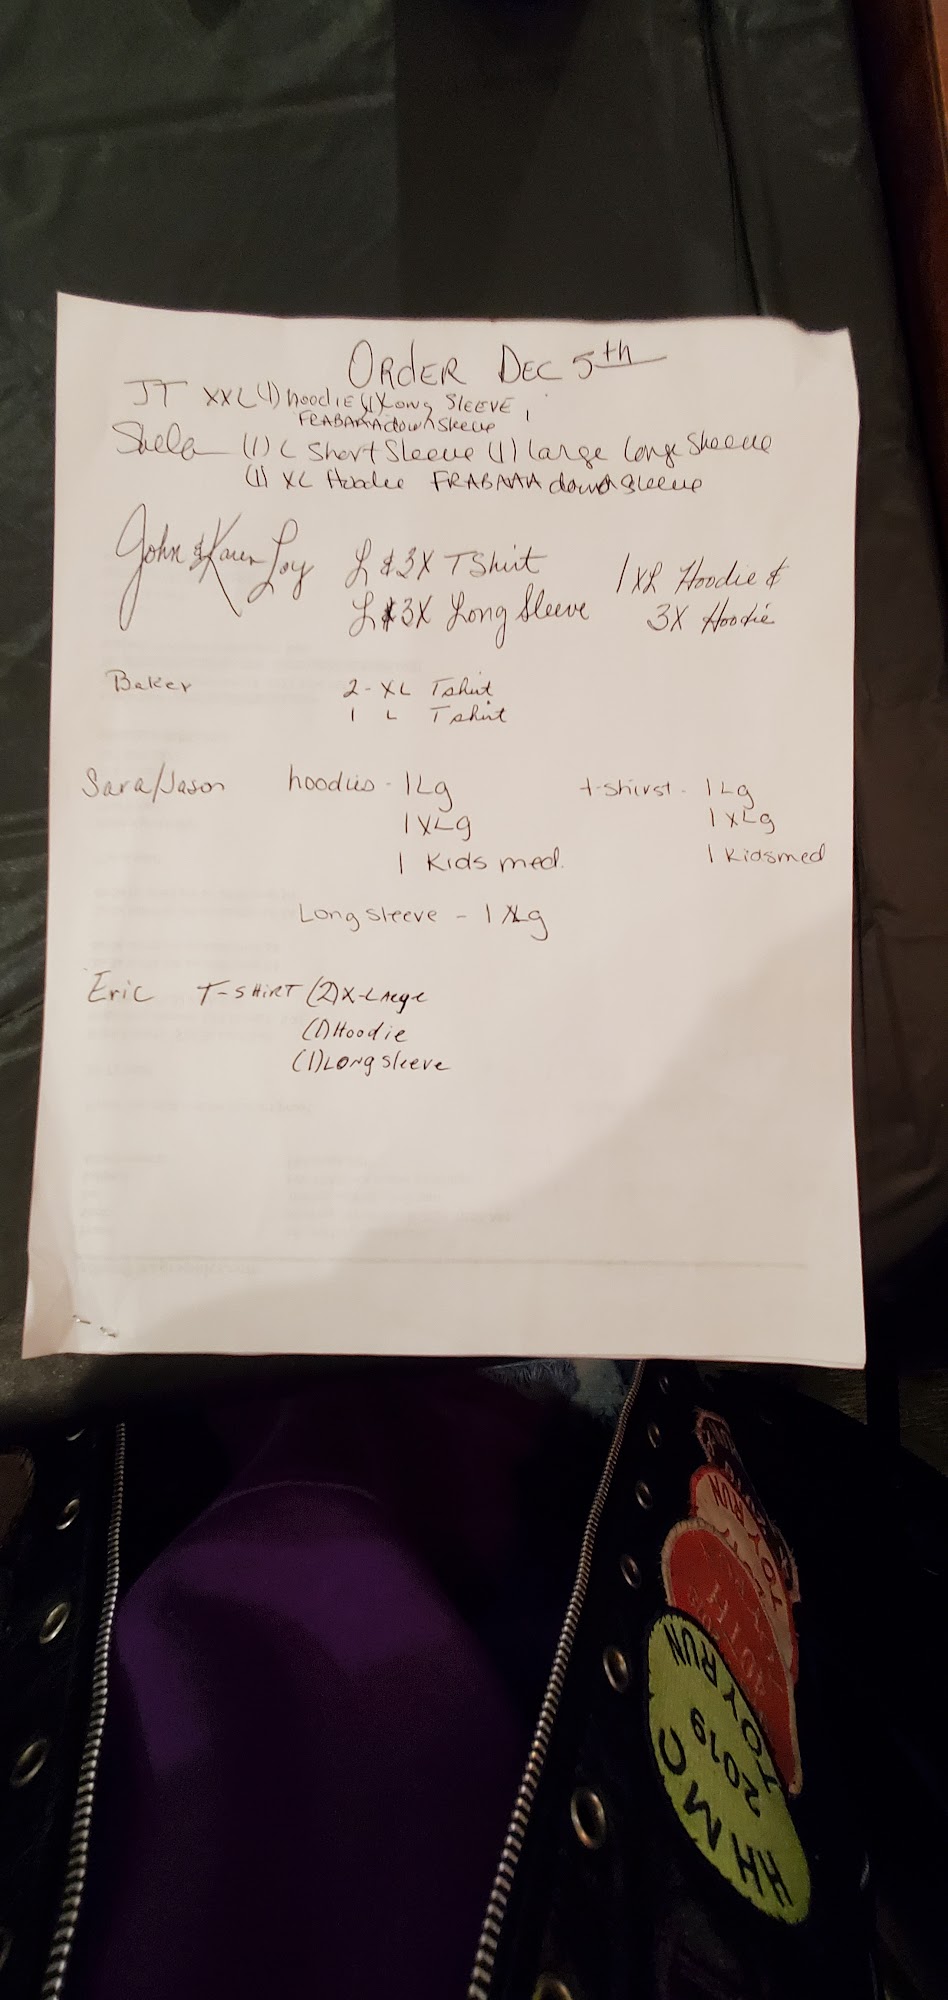 ORDER DEC 5th
JT XXL (1) hoodie (1) Long SLEEVE,
FRABAAA down Sleeve
Shela (1) L Short Sleeve (1) Large Long Sleeve
(1) XL Hoodie FRABAAA down sleeve
John & Karen Loy L & 3X TShirt 1 XL Hoodie &
L & 3X Long Sleeve 3X Hoodie
Baker 2 - XL Tshirt
1 L Tshirt
Sara/Jason hoodies - 1 Lg t-shirst - 1 Lg
1 XLg 1 XLg
1 Kids med. 1 Kids med
Long sleeve - 1 XLg
Eric T-SHIRT (2) X-Large
(1) Hoodie
(1) Long sleeve
TOY RUN
HHMC
2019
TOY RUN